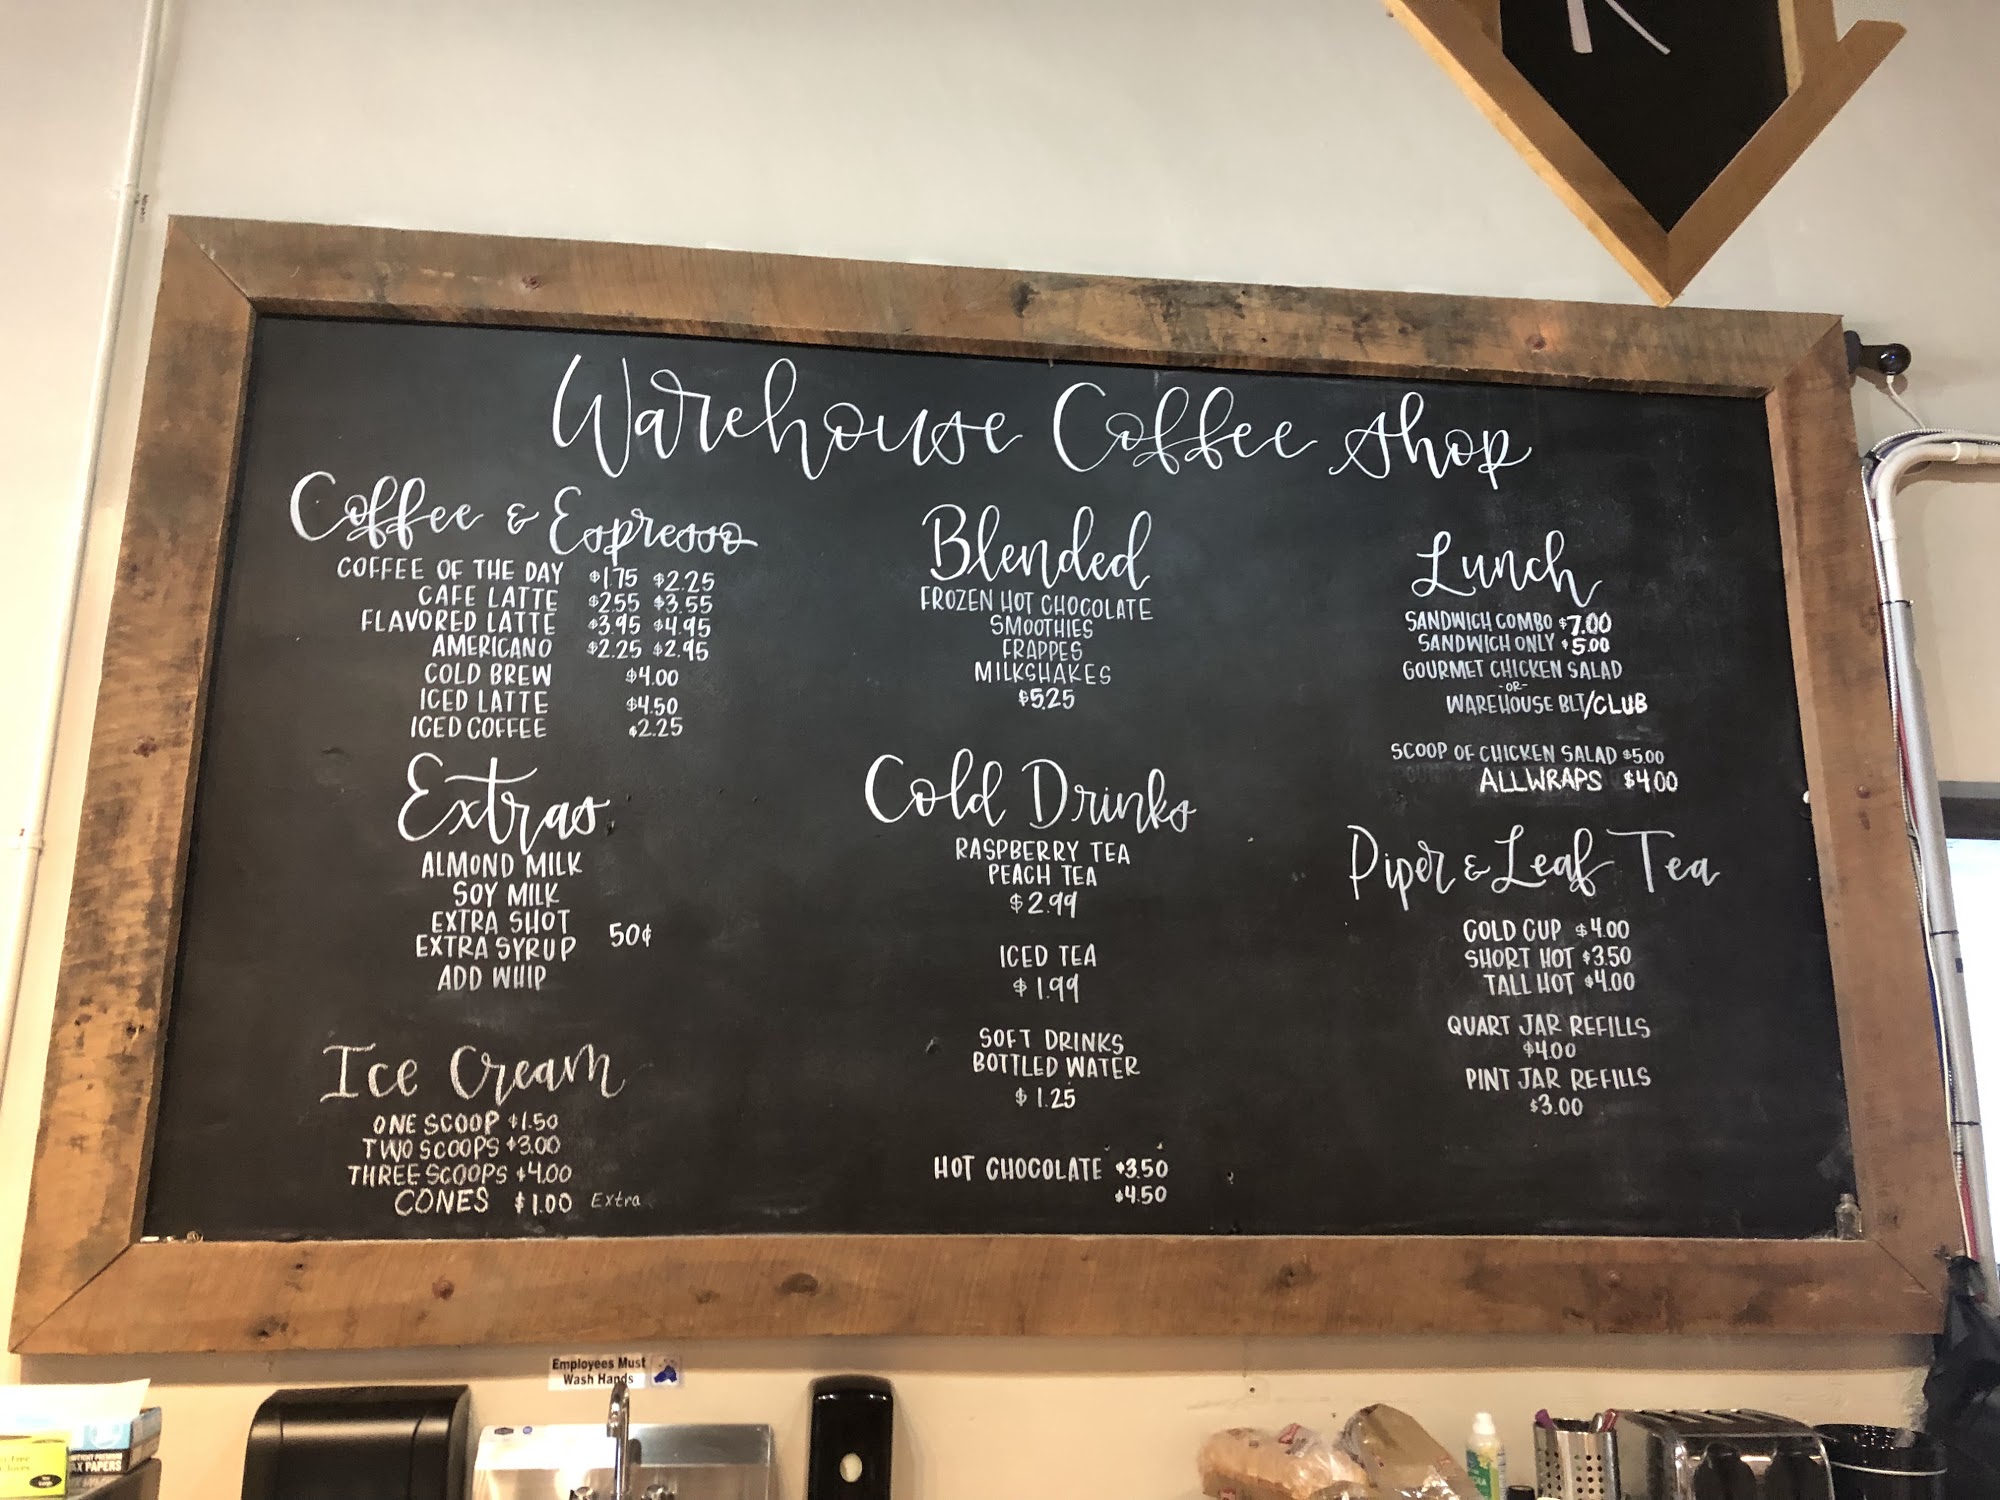 Warehouse Coffee Shop
Coffee & Espresso
COFFEE OF THE DAY $1.75 $2.25
CAFE LATTE $2.55 $3.55
FLAVORED LATTE $3.95 $4.95
AMERICANO $2.25 $2.95
COLD BREW $4.00
ICED LATTE $4.50
ICED COFFEE $2.25
Extras
ALMOND MILK
SOY MILK
EXTRA SHOT
EXTRA SYRUP 50¢
ADD WHIP
Ice Cream
ONE SCOOP $1.50
TWO SCOOPS $3.00
THREE SCOOPS $4.00
CONES $1.00 Extra
Blended
FROZEN HOT CHOCOLATE
SMOOTHIES
FRAPPES
MILKSHAKES
$5.25
Cold Drinks
RASPBERRY TEA
PEACH TEA
$2.99
ICED TEA
$1.99
SOFT DRINKS
BOTTLED WATER
$1.25
HOT CHOCOLATE $3.50
$4.50
Lunch
SANDWICH COMBO $7.00
SANDWICH ONLY $5.00
GOURMET CHICKEN SALAD
-OR-
WAREHOUSE BLT/CLUB
SCOOP OF CHICKEN SALAD $5.00
ALL WRAPS $4.00
Piper & Leaf Tea
COLD CUP $4.00
SHORT HOT $3.50
TALL HOT $4.00
QUART JAR REFILLS
$4.00
PINT JAR REFILLS
$3.00
Employees Must
Wash Hands
PAPERS